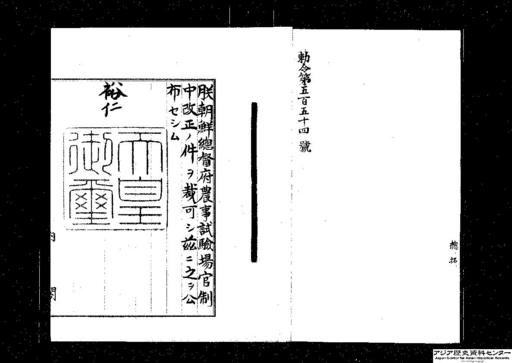 勅令第五百五十四號
朕朝鮮總督府農事試驗場官制
中改正ノ件ヲ裁可シ茲ニ之ヲ公
布セシム
裕仁
天皇
御璽
内
閣
アジア歴史資料センター
Japan Center for Asian Historical Records